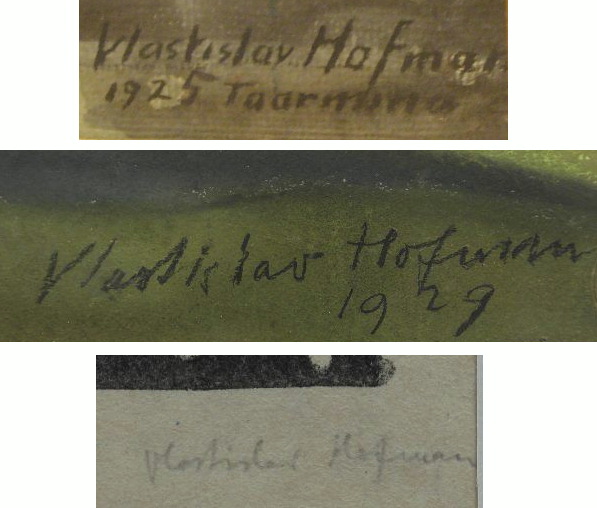 Vlastislav Hofman
1925 Taormina
Vlastislav Hofman
1929
Vlastislav Hofman